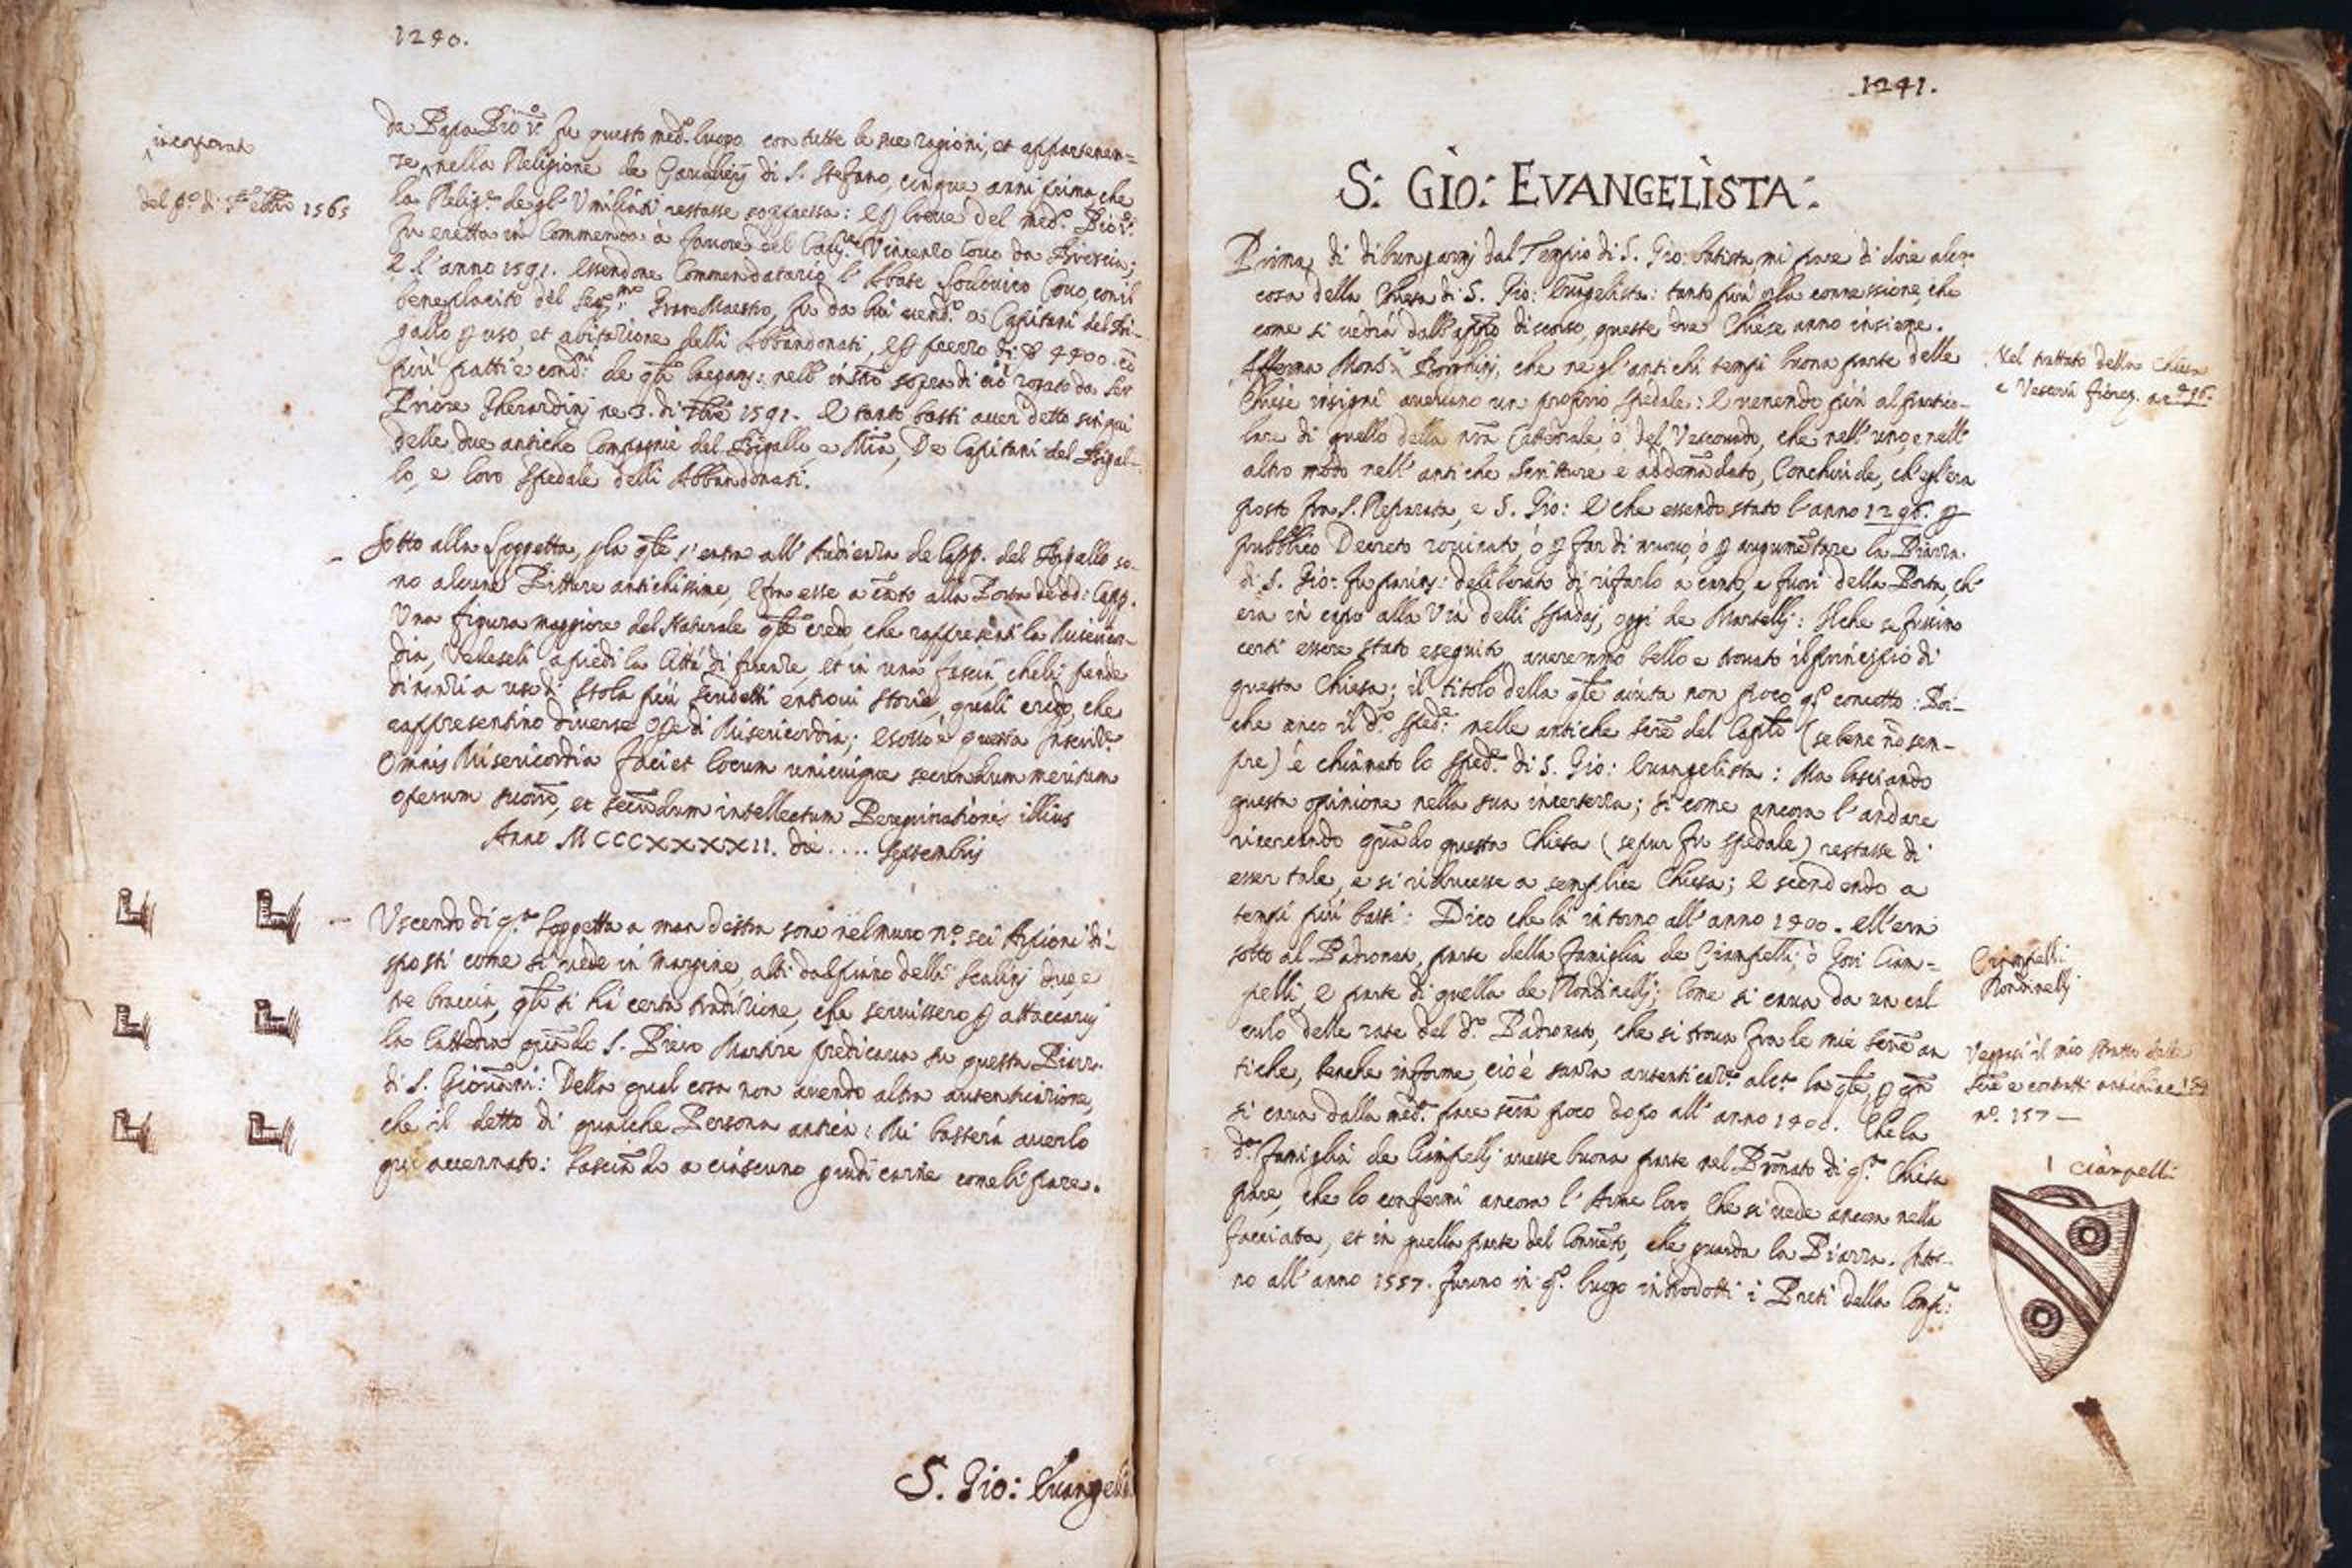 1240.
incorporato
del pº. di 8bre 1565
da Papa Pio Vº. fu questo medº. luogo con tutte le sue ragioni, et appartenen=
ze nella Religione de Cavalieri di S. Stefano, cinque anni prima, che
la Religne. de gl' Umiliati restasse soppressa: E p breve del medº. Pio Vº.
fu eretta in Commenda à favore del Cavre. Vincenzo Covo da Brescia;
E l'anno 1591. essendone Commendatario l'Abbate Lodovico Covo, con il
beneplacito del Sermo. Gran Maestro, fu da lui vendº. a Capitani del Bi-
gallo p uso, et abitazione delli Abbandonati, E p prezzo di 4400. cō
più patti e condni.
Priore Gherardinj ne 3. di 1591. E tanto basti aver detto sin qui
delle due antiche Compagnie del Bigallo, e Mīa, De Capitani del Bigal-
lo, e loro Spedale delli Abbandonati.
Sotto alla Loggetta, p la qle s'entra all'Audienza de Capp. del Bigallo so-
no alcune Pitture antichissime, E fra esse a cāto alla Porta de dd: Capp.
Una figura maggiore del Naturale qle credo, che rappresenti la Misericor-
dia, Vedeseli a piedi la Città di firenze, et in una fascia, che li pende
dinanzi a uso di stola più tondetti entrovi storie, quali credo, che
rappresentino diverse ope di Misericordia; e sotto è questa Inscride.
Omnis Misericordia faciet locum unicuique secundum meritum
operum suorū, et secūdum intellectum Peregrinationis illius
Anno MCCCXXXXII. die .... Septembris
Uscendo di qta. Loggetta a man destra sono nel muro nº. sei Arpioni di-
sposti come si vede in margine, alti dal piano delli scalinj due, e
tre braccia, qli si hà certa tradizione, che servissero p attaccarvj
la Cattedra quādo S. Piero Martire predicava su questa Piazza
di S. Giovāni: Della qual cosa non avendo altra autenticazione,
che il detto di qualche Persona antica: Mi basterà averlo
qui accennato: lasciādo a ciascuno giudicarne come li pare.
S. Gio: Evangeli
1241.
S: GIO: EVANGELISTA:
Prima di dilungarmj dal Tempio di S. Gio: Batista, mi pare di dire alcª.
cosa della Chiesa di S. Gio: Evangelista: tanto più p la connessione, che
come si vedrà dall'apprō discorso, queste due Chiese anno insieme.
Afferma Monsr. Borghinj, che ne gl'antichi tempi buona parte delle
Chiese insigni avevano un proprio spedale: E venendo più al partico-
lare di quello della nrā Cattedrale, ò del Vescovado, che nell'uno, e nell'
altro modo nell'antiche scritture è addomādato, Conchiude, ch'egl'era
posto fra S. Reparata, e S. Gio: E che essendo stato l'anno 1296. p
pubblico Decreto rovinato, ò p far di nuovo, ò p augumētare la Piazza
di S. Gio: fu parimj: deliberato di rifarlo a canto, e fuori della Porta, ch'
era in capo alla Via delli Spadaj, oggi de Martellj: Il che se fussimo
certi essere stato eseguito, averemmo bello e trovato il principio di
questa Chiesa; il titolo della qle aiuta non poco qº concetto: Poi-
che anco il dº. Spedle. nelle antiche scrē del Caplō (se bene nō sem-
pre) è chiamato lo Spedle. di S. Gio: Evangelista: Ma lasciando
questa opinione nella sua incertezza; si come ancora l'andare
ricercando quādo questa Chiesa (se pur fu spedale) restasse di
esser tale, e si riducesse a semplice Chiesa; E scendendo a
tempi più bassi: Dico che là intorno all'anno 1400. ell'era
sotto al Padronato, parte della famiglia de Ciampelli, ò Gori Ciam=
pelli, e parte di quella de Rondinellj: Come si cava da un cal
culo delle rate del dº. Padronato, che si trova fra le mie scrē an
tiche, benche informe, cioè senza autenticazne. alcª. la qle, p qto
si cava dalla medª. pare serā poco dopo all'anno 1400. Che la
dª. famiglia de Ciampellj avesse buona parte nel Prōnato di qta. Chiesa
pare, che lo confermi ancora l'Arme loro, che si vede ancora nella
facciata, et in quella parte del Convēto, che guarda la Piazza. Intor-
no all'anno 1557. furno in qº. luogo introdotti i Preti della Compª:
Nel trattato della Chiesa
e Vescovi fiorenj. a c 496.
Ciampelli
Rondinellj
Veggasi il mio stratto delle
scrē e contratti antichi a c
nº. 157 —
ciampelli